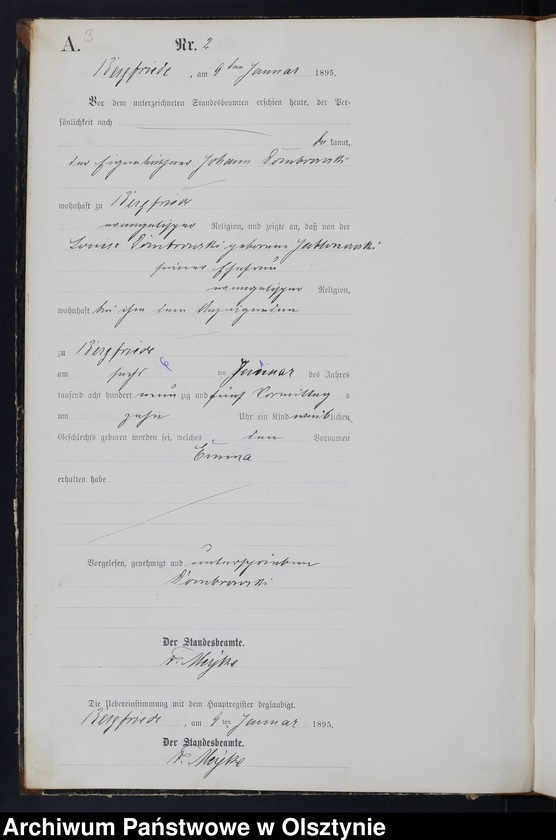 A. 3 Nr. 2
Bergfriede, am 9ten Januar 1895.
Vor dem unterzeichneten Standesbeamten erschien heute, der Per-
sönlichkeit nach
be kannt,
der Eigenkäthner Johann Dombrowski
wohnhaft zu Bergfriede
evangelischer Religion, und zeigte an, daß von der
Louise Dombrowski geborene Jablonowski
seiner Ehefrau
evangelischer Religion,
wohnhaft bei ihm dem Anzeigenden
zu Bergfriede
am sechs ten Januar des Jahres
tausend acht hundert neun zig und fünf Vormittag s
um zehn Uhr ein Kind weiblichen
Geschlechts geboren worden sei, welches den Vornamen
Emma
erhalten habe
Vorgelesen, genehmigt und unterschrieben
Dombrowski
Der Standesbeamte.
Die Uebereinstimmung mit dem Hauptregister beglaubigt.
Bergfriede, am 9ten Januar 1895.
Der Standesbeamte.
Archiwum Państwowe w Olsztynie